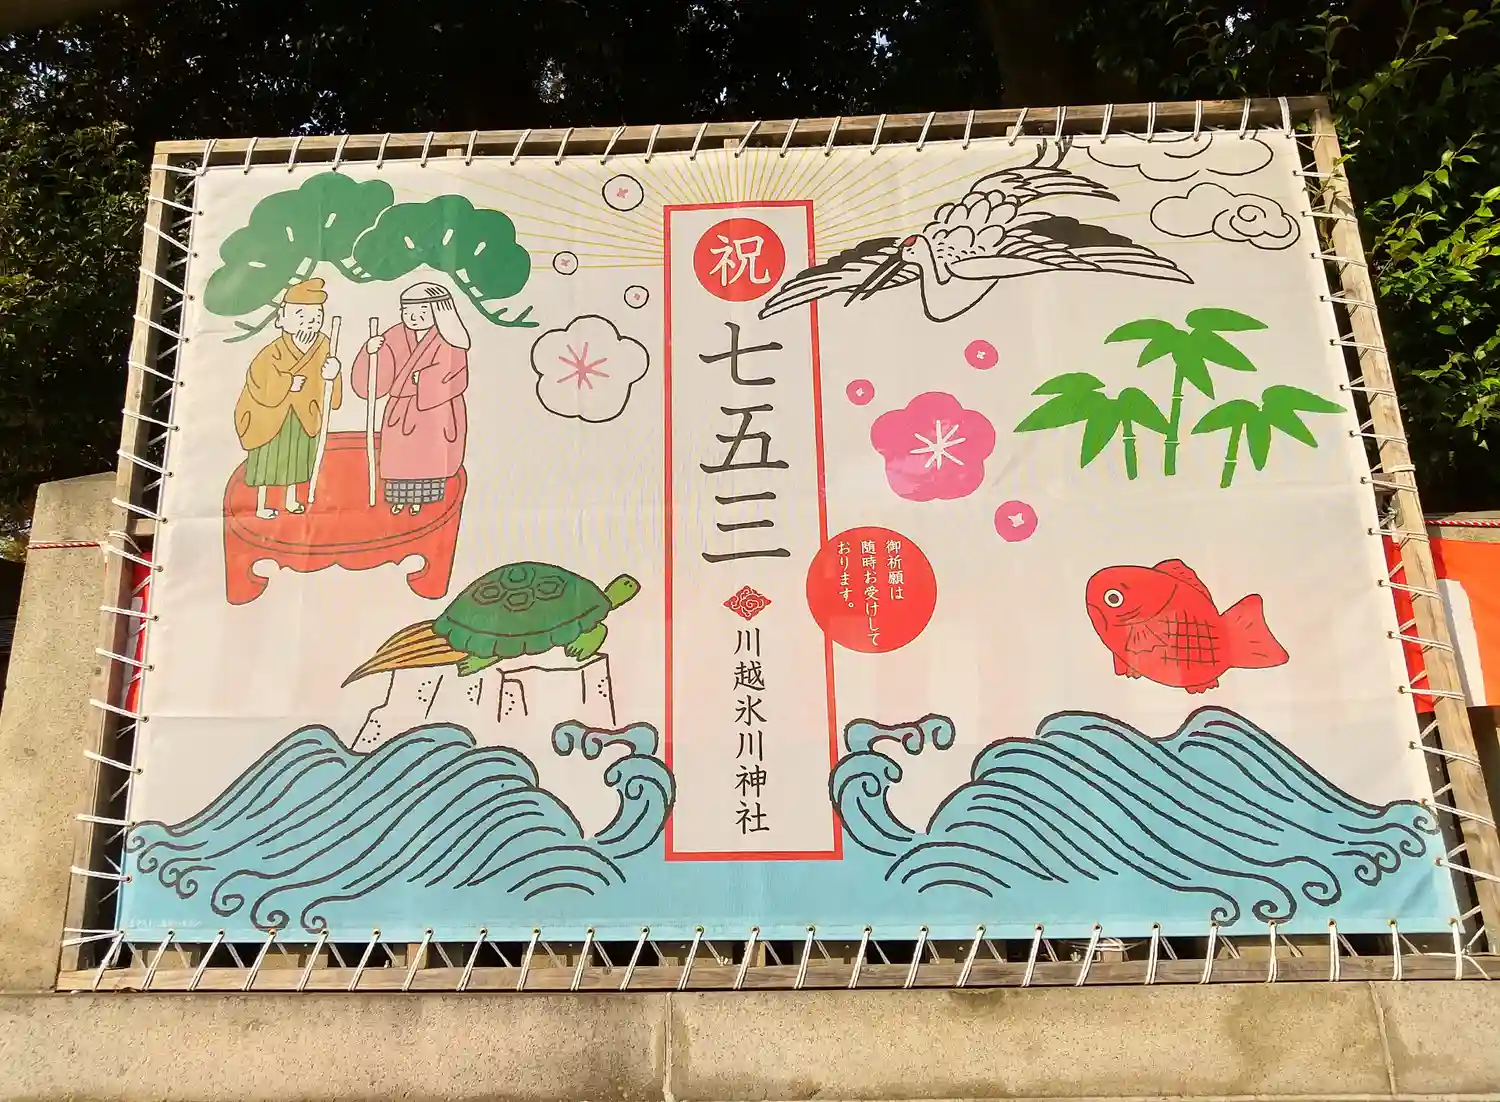 祝
七五三
川越氷川神社
御祈願は
随時お受けして
おります。